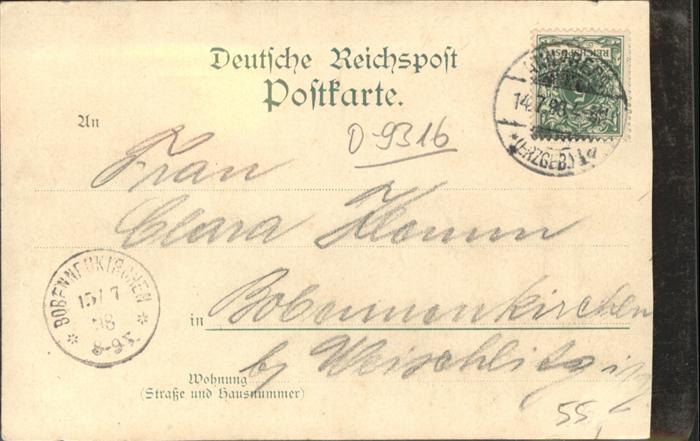 Deutsche Reichspost
Postkarte.
REICHSPOST
ANNABERG
14.7.98
*(ERZGEB.)1d
An
D-9316
Frau
Clara
BOBENNEUKIRCHEN
15/7
98
8-9V.
in Bobenneukirchen
by Weischlitz
Wohnung
(Straße und Hausnummer)
55,